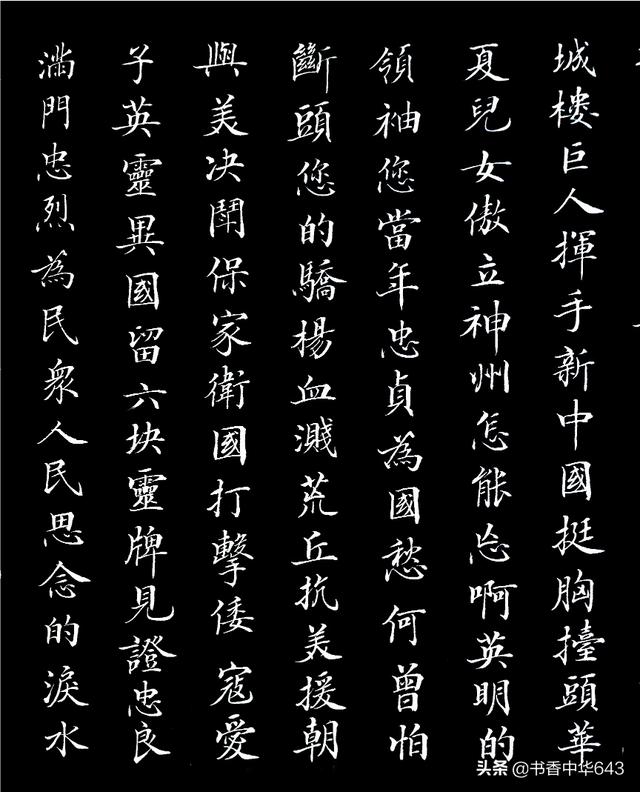 城楼巨人揮手新中國挺胸擡頭華
夏兒女傲立神州怎能忘啊英明的
領袖您當年忠貞為國愁何曾怕
斷頭您的驕楊血濺荒丘抗美援朝
與美决鬭保家衛國打擊倭寇愛
子英靈異國留六块靈牌見證忠良
滿門忠烈為民眾人民思念的淚水
头条@书香中华643